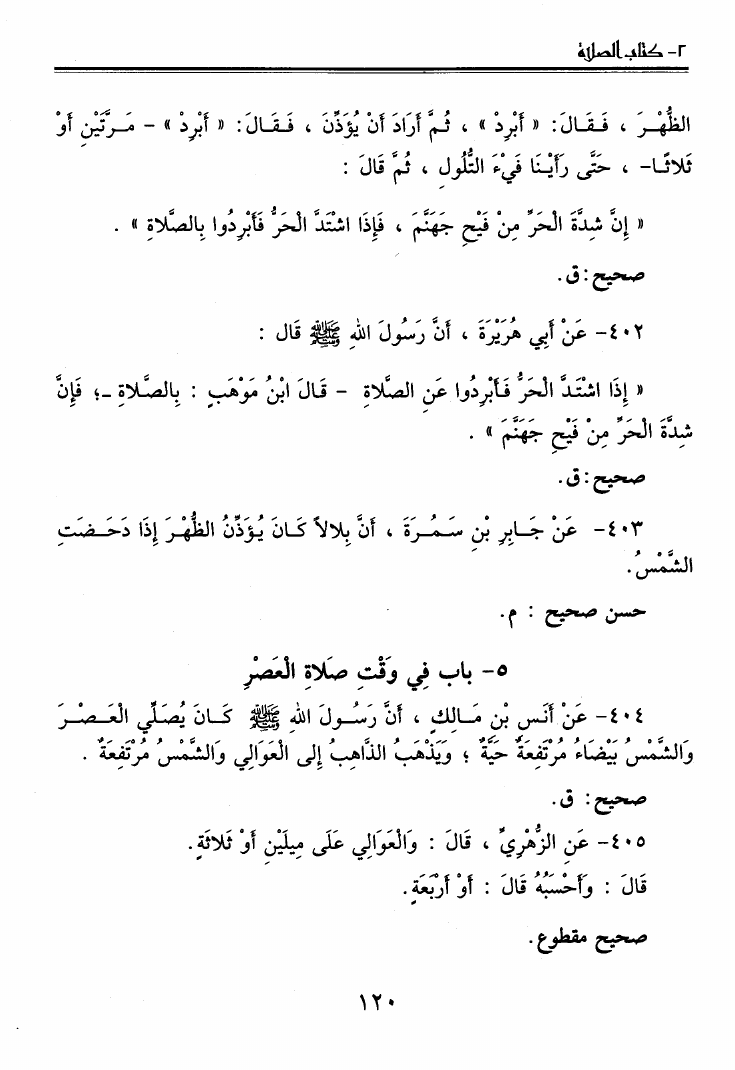 ٢- كتاب الصلاة
الظُّهْرَ ، فَقَالَ : « أَبْرِدْ » ، ثُمَّ أَرَادَ أَنْ يُؤَذِّنَ ، فَقَالَ : « أَبْرِدْ » - مَرَّتَيْنِ أَوْ
ثَلاثًا- ، حَتَّى رَأَيْنَا فَيْءَ التُّلُولِ ، ثُمَّ قَالَ :
« إِنَّ شِدَّةَ الْحَرِّ مِنْ فَيْحِ جَهَنَّمَ ، فَإِذَا اشْتَدَّ الْحَرُّ فَأَبْرِدُوا بِالصَّلاةِ » .
صحيح : ق.
٤٠٢- عَنْ أَبِي هُرَيْرَةَ ، أَنَّ رَسُولَ اللهِ ﷺ قال :
« إِذَا اشْتَدَّ الْحَرُّ فَأَبْرِدُوا عَنِ الصَّلاةِ - قَالَ ابْنُ مَوْهَبٍ : بِالصَّلاةِ -؛ فَإِنَّ
شِدَّةَ الْحَرِّ مِنْ فَيْحِ جَهَنَّمَ » .
صحيح : ق.
٤٠٣- عَنْ جَابِرِ بْنِ سَمُرَةَ ، أَنَّ بِلالاً كَانَ يُؤَذِّنُ الظُّهْرَ إِذَا دَحَضَتِ
الشَّمْسُ.
حسن صحيح : م.
٥- باب فِي وَقْتِ صَلاةِ الْعَصْرِ
٤٠٤- عَنْ أَنَسِ بْنِ مَالِكٍ ، أَنَّ رَسُولَ اللهِ ﷺ كَانَ يُصَلِّي الْعَصْرَ
وَالشَّمْسُ بَيْضَاءُ مُرْتَفِعَةٌ حَيَّةٌ ؛ وَيَذْهَبُ الذَّاهِبُ إِلَى الْعَوَالِي وَالشَّمْسُ مُرْتَفِعَةٌ .
صحيح : ق.
٤٠٥- عَنِ الزُّهْرِيِّ ، قَالَ : وَالْعَوَالِي عَلَى مِيلَيْنِ أَوْ ثَلاثَةٍ.
قَالَ : وَأَحْسَبُهُ قَالَ : أَوْ أَرْبَعَةٍ.
صحيح مقطوع.
١٢٠